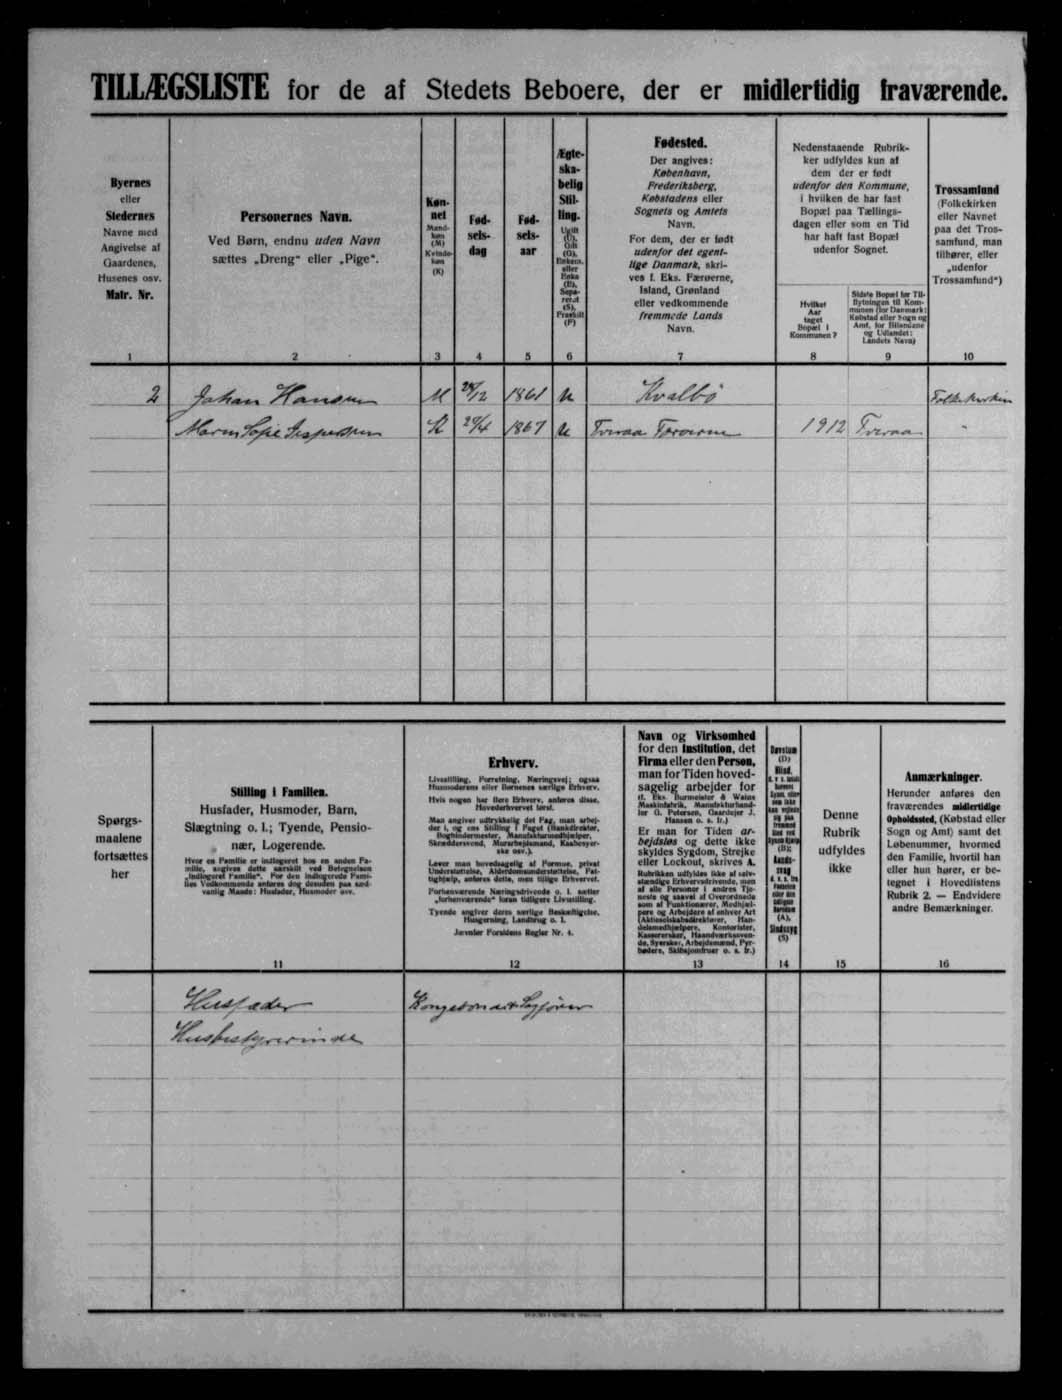 TILLÆGSLISTE for de af Stedets Beboere, der er midlertidig fraværende.
Byernes
eller
Stedernes
Navne med
Angivelse af
Gaardenes,
Husenes osv.
Matr. Nr.
1
Personernes Navn.
Ved Børn, endnu uden Navn
sættes „Dreng" eller „Pige".
2
Køn-
net
Mand-
køn
(M)
Kvinde-
køn
(K)
3
Fød-
sels-
dag
4
Fød-
sels-
aar
5
Ægte-
ska-
belig
Stil-
ling.
Ugift
(U),
Gift
(G),
Enkem.
eller
Enke
(E),
Sepa-
reret
(S),
Fraskilt
(F)
6
Fødested.
Der angives:
København,
Frederiksberg,
Købstadens eller
Sognets og Amtets
Navn.
For dem, der er født
udenfor det egent-
lige Danmark, skri-
ves f. Eks. Færøerne,
Island, Grønland
eller vedkommende
fremmede Lands
Navn.
7
Nedenstaaende Rubrik-
ker udfyldes kun af
dem der er født
udenfor den Kommune,
i hvilken de har fast
Bopæl paa Tællings-
dagen eller som en Tid
har haft fast Bopæl
udenfor Sognet.
Hvilket
Aar
taget
Bopæl i
Kommunen?
8
Sidste Bopæl før Til-
flytningen til Kom-
munen (for Danmark:
Købstad eller Sogn og
Amt, for Bilandene
og Udlandet:
Landets Navn)
9
Trossamfund
(Folkekirken
eller Navnet
paa det Tros-
samfund, man
tilhører, eller
„udenfor
Trossamfund")
10
2 Johan Hansen M 24/12 1861 U Kvalbø Folkekirken
Maren Sofie Jespersen K 29/4 1867 U Tveraa Færøerne 1912 Tveraa "
Spørgs-
maalene
fortsættes
her
Stilling i Familien.
Husfader, Husmoder, Barn,
Slægtning o. l.; Tyende, Pensio-
nær, Logerende.
Hvor en Familie er indlogeret hos en anden Fa-
milie, angives dette særskilt ved Betegnelsen
„Indlogeret Familie". For den indlogerede Fami-
lies Vedkommende anføres dog desuden paa sæd-
vanlig Maade: Husfader, Husmoder osv.
11
Erhverv.
Livsstilling, Forretning, Næringsvej; ogsaa
Husmoderens eller Børnenes særlige Erhverv.
Hvis nogen har flere Erhverv, anføres disse,
Hovederhvervet først.
Man angiver udtrykkelig det Fag, man arbej-
der i, og ens Stilling i Faget (Bankdirektør,
Bogbindermester, Manufakturmedhjælper,
Skræddersvend, Murarbejdsmand, Kaabesyer-
ske osv.).
Lever man hovedsagelig af Formue, privat
Understøttelse, Alderdomsunderstøttelse, Fat-
tighjælp, anføres dette, men tillige Erhvervet.
Forhenværende Næringsdrivende o. l. sætter
„forhenværende" foran tidligere Livsstilling.
Tyende angiver deres særlige Beskæftigelse,
Husgerning, Landbrug o. l.
Jævnfør Forsidens Regler Nr. 4.
12
Navn og Virksomhed
for den Institution, det
Firma eller den Person,
man for Tiden hoved-
sagelig arbejder for
(f. Eks. Burmeister & Wains
Maskinfabrik, Manufakturhand-
ler G. Petersen, Gaardejer J.
Hansen o. s. fr.)
Er man for Tiden ar-
bejdsløs og dette ikke
skyldes Sygdom, Strejke
eller Lockout, skrives A.
Rubrikken udfyldes ikke af selv-
stændige Erhvervsdrivende, men
af alle Personer i andres Tje-
neste og saavel af Overordnede
som af Funktionærer, Medhjæl-
pere og Arbejdere af enhver Art
(Aktieselskabsdirektører, Han-
delsmedhjælpere, Kontorister,
Kassererske, Haandværkssven-
de, Syersker, Arbejdsmænd, Fyr-
bødere, Skibsjomfruer o. s. fr.)
13
Døvstum
(D)
Blind,
(B);
Aands-
svag
(A),
Sindssyg
(S)
14
Denne
Rubrik
udfyldes
ikke
15
Anmærkninger.
Herunder anføres den
fraværendes midlertidige
Opholdssted, (Købstad eller
Sogn og Amt) samt det
Løbenummer, hvormed
den Familie, hvortil han
eller hun hører, er be-
tegnet i Hovedlistens
Rubrik 2. — Endvidere
andre Bemærkninger.
16
Husfader
Husbestyrerinde